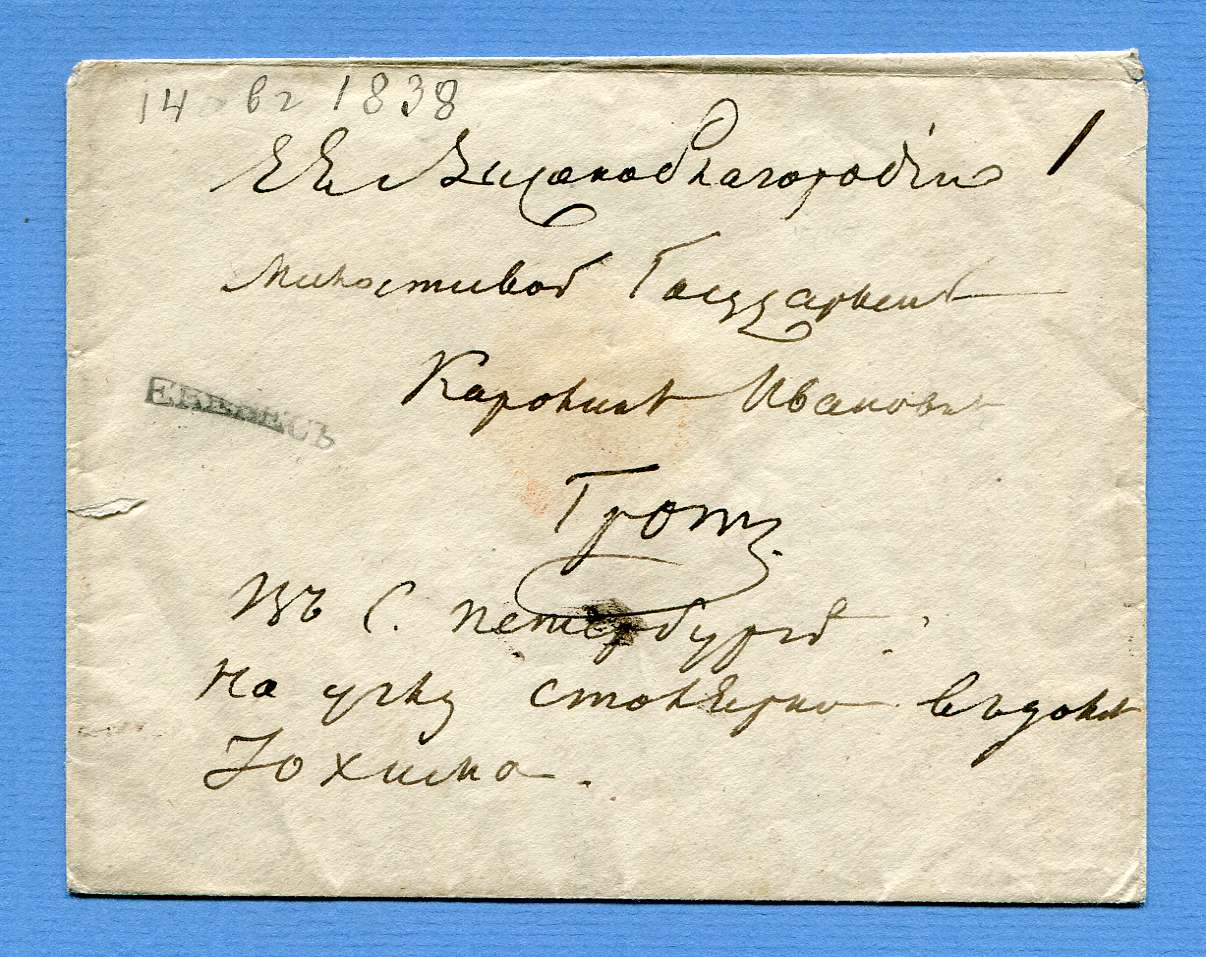 14 вг 1838
ЕЕ Высокоблагородiю 1
Милостивой Государынѣ
Каролинѣ Ивановнѣ
Гротъ.
Въ С. Петербургѣ.
на углу столярно въ домѣ
Іохима.